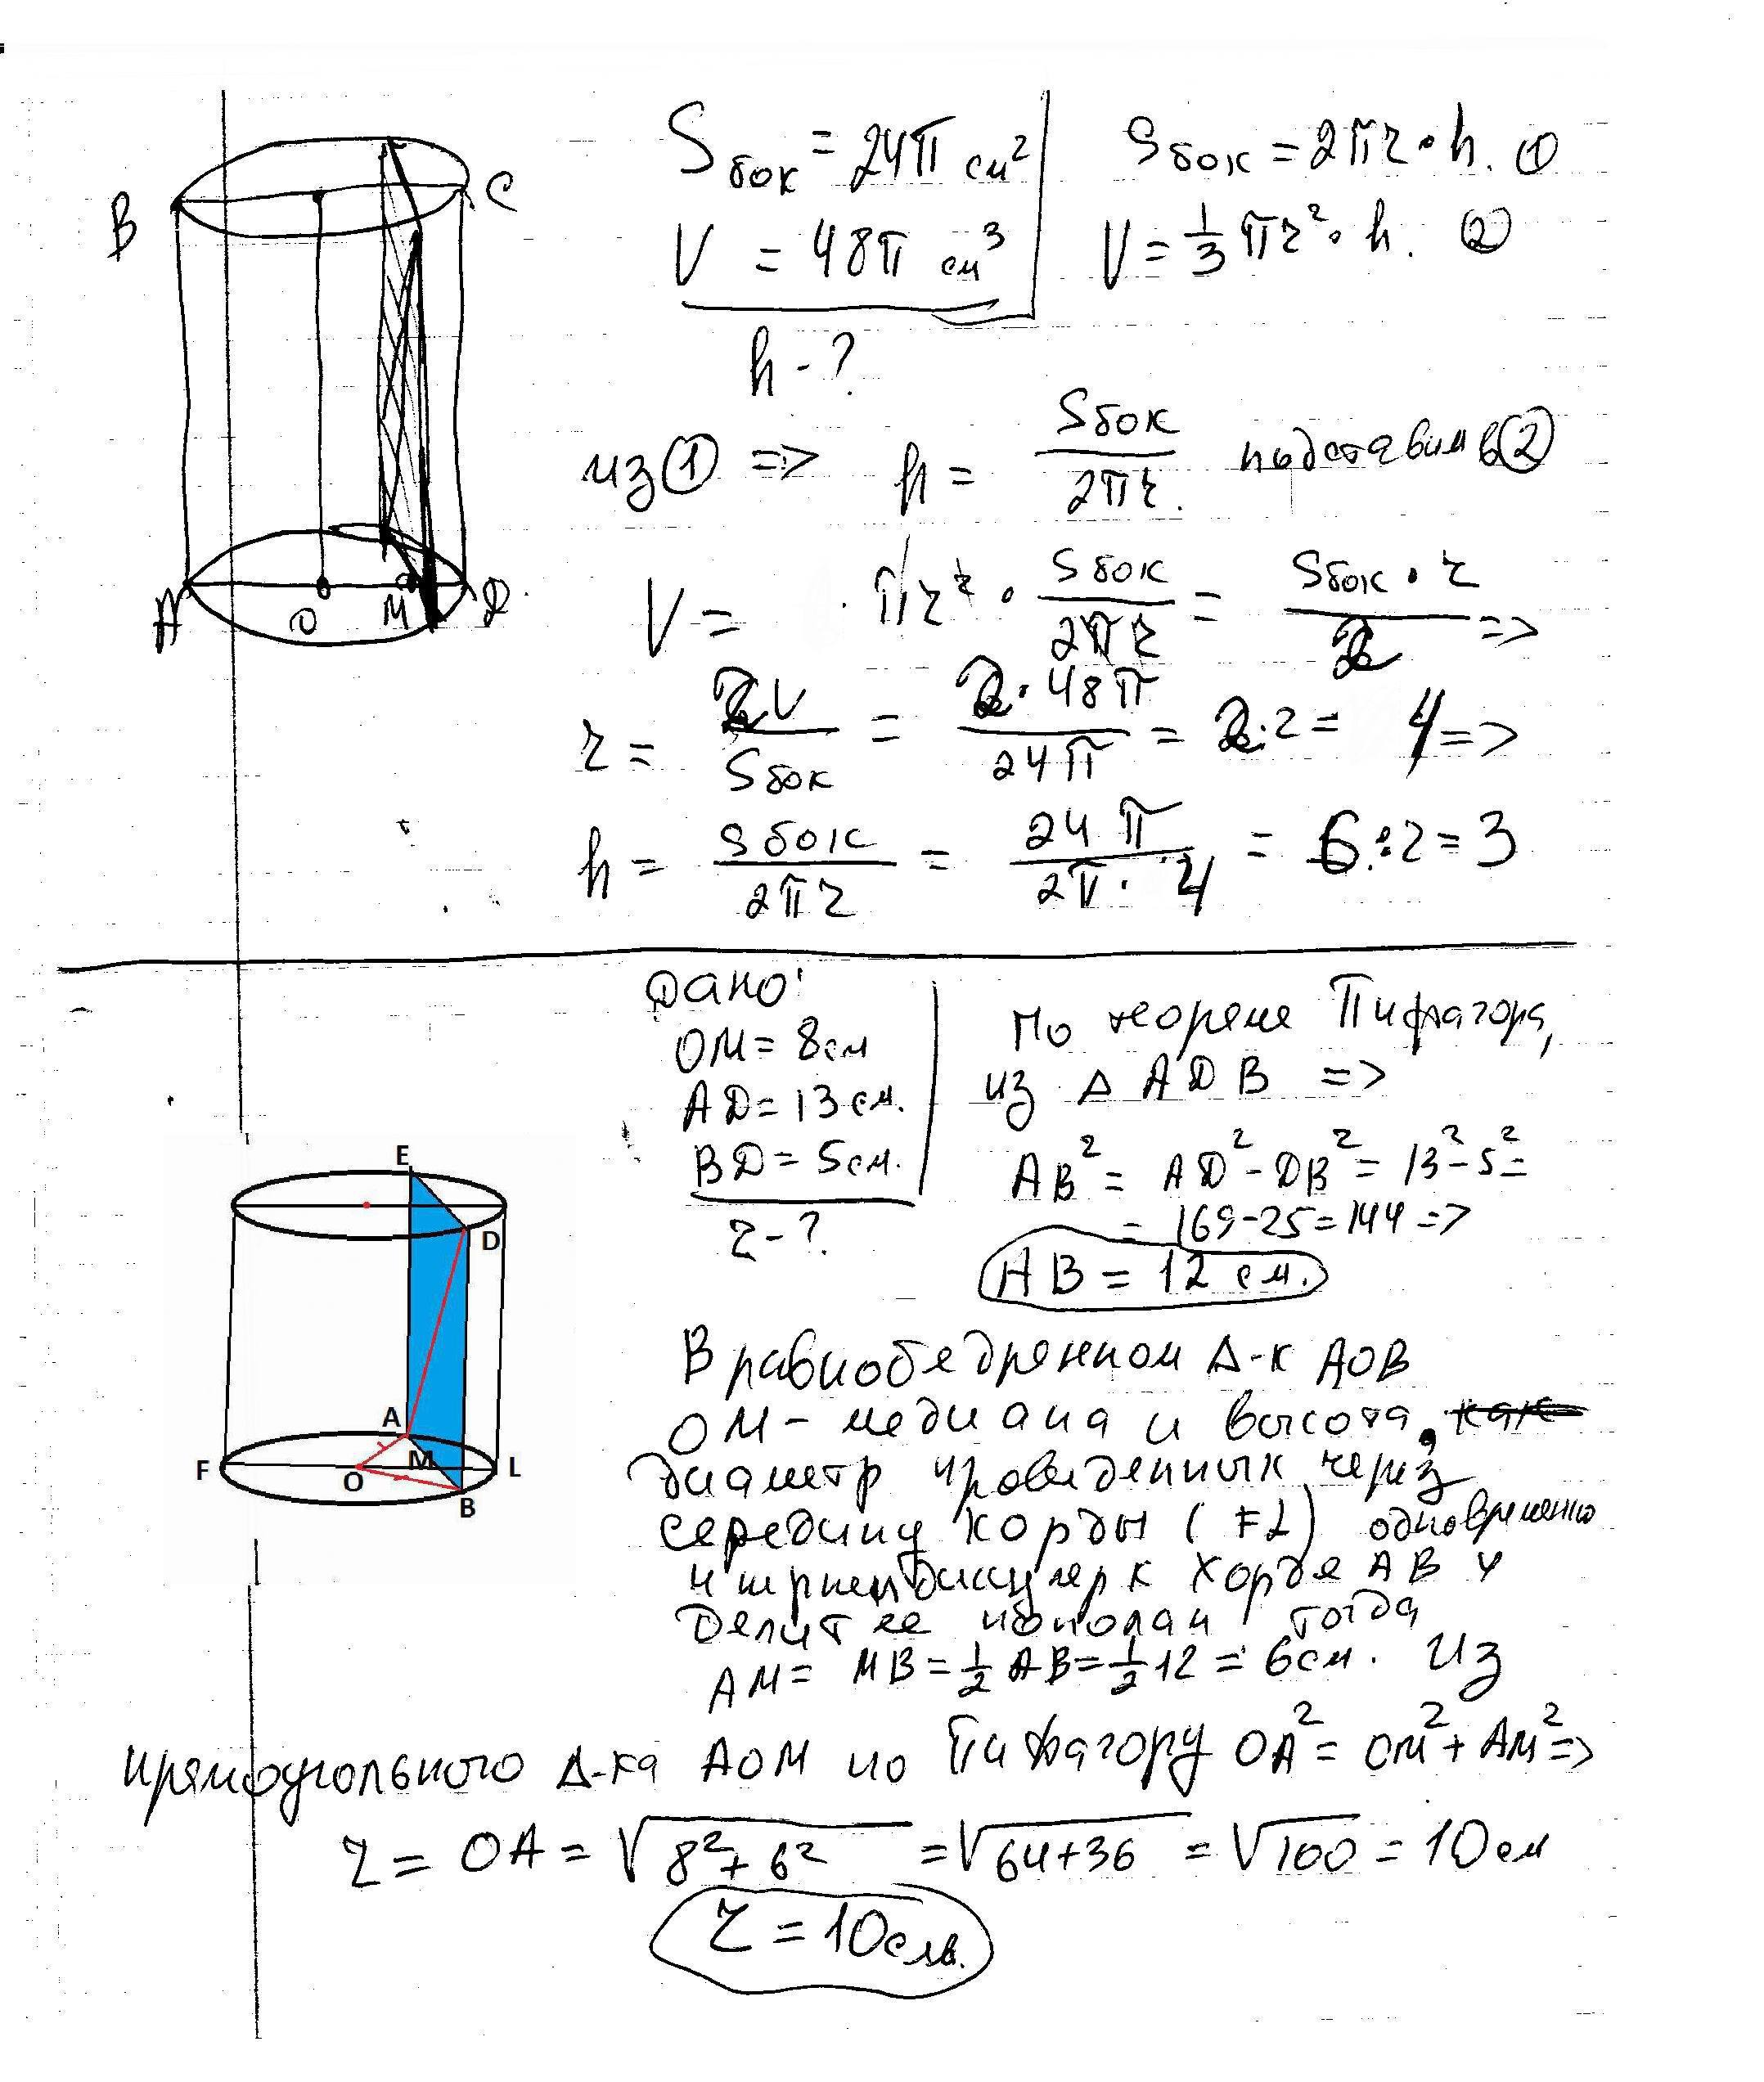 B
C
A
O
M
D
Sбок = 24π см²
V = 48π см³
h - ?
Sбок = 2πr · h. ①
V = 1/3 πr² · h. ②
из ① => h = Sбок / 2πr. подставим в ②
V = · πr² · Sбок / 2πr = Sбок · r / 2 =>
r = 2V / Sбок = 2 · 48π / 24π = 2 · 2 = 4 =>
h = Sбок / 2πr = 24π / 2π · 4 = 6 : 2 = 3
Дано:
OM = 8 см
AD = 13 см.
BD = 5 см.
r - ?
По теореме Пифагора,
из Δ ADB =>
AB² = AD² - DB² = 13² - 5² =
= 169 - 25 = 144 =>
AB = 12 см.
E
D
A
M
F
O
L
B
В равнобедренном Δ-к AOB
OM - медиана и высота,
диаметр проведенных через
середину хорды (FL) одновременно
и перпендикуляр к хорде AB и
делит ее пополам тогда
AM = MB = 1/2 AB = 1/2 12 = 6 см. Из
прямоугольного Δ-ка AOM по Пифагору OA² = OM² + AM² =>
r = OA = √8² + 6² = √64 + 36 = √100 = 10 см
r = 10 см.